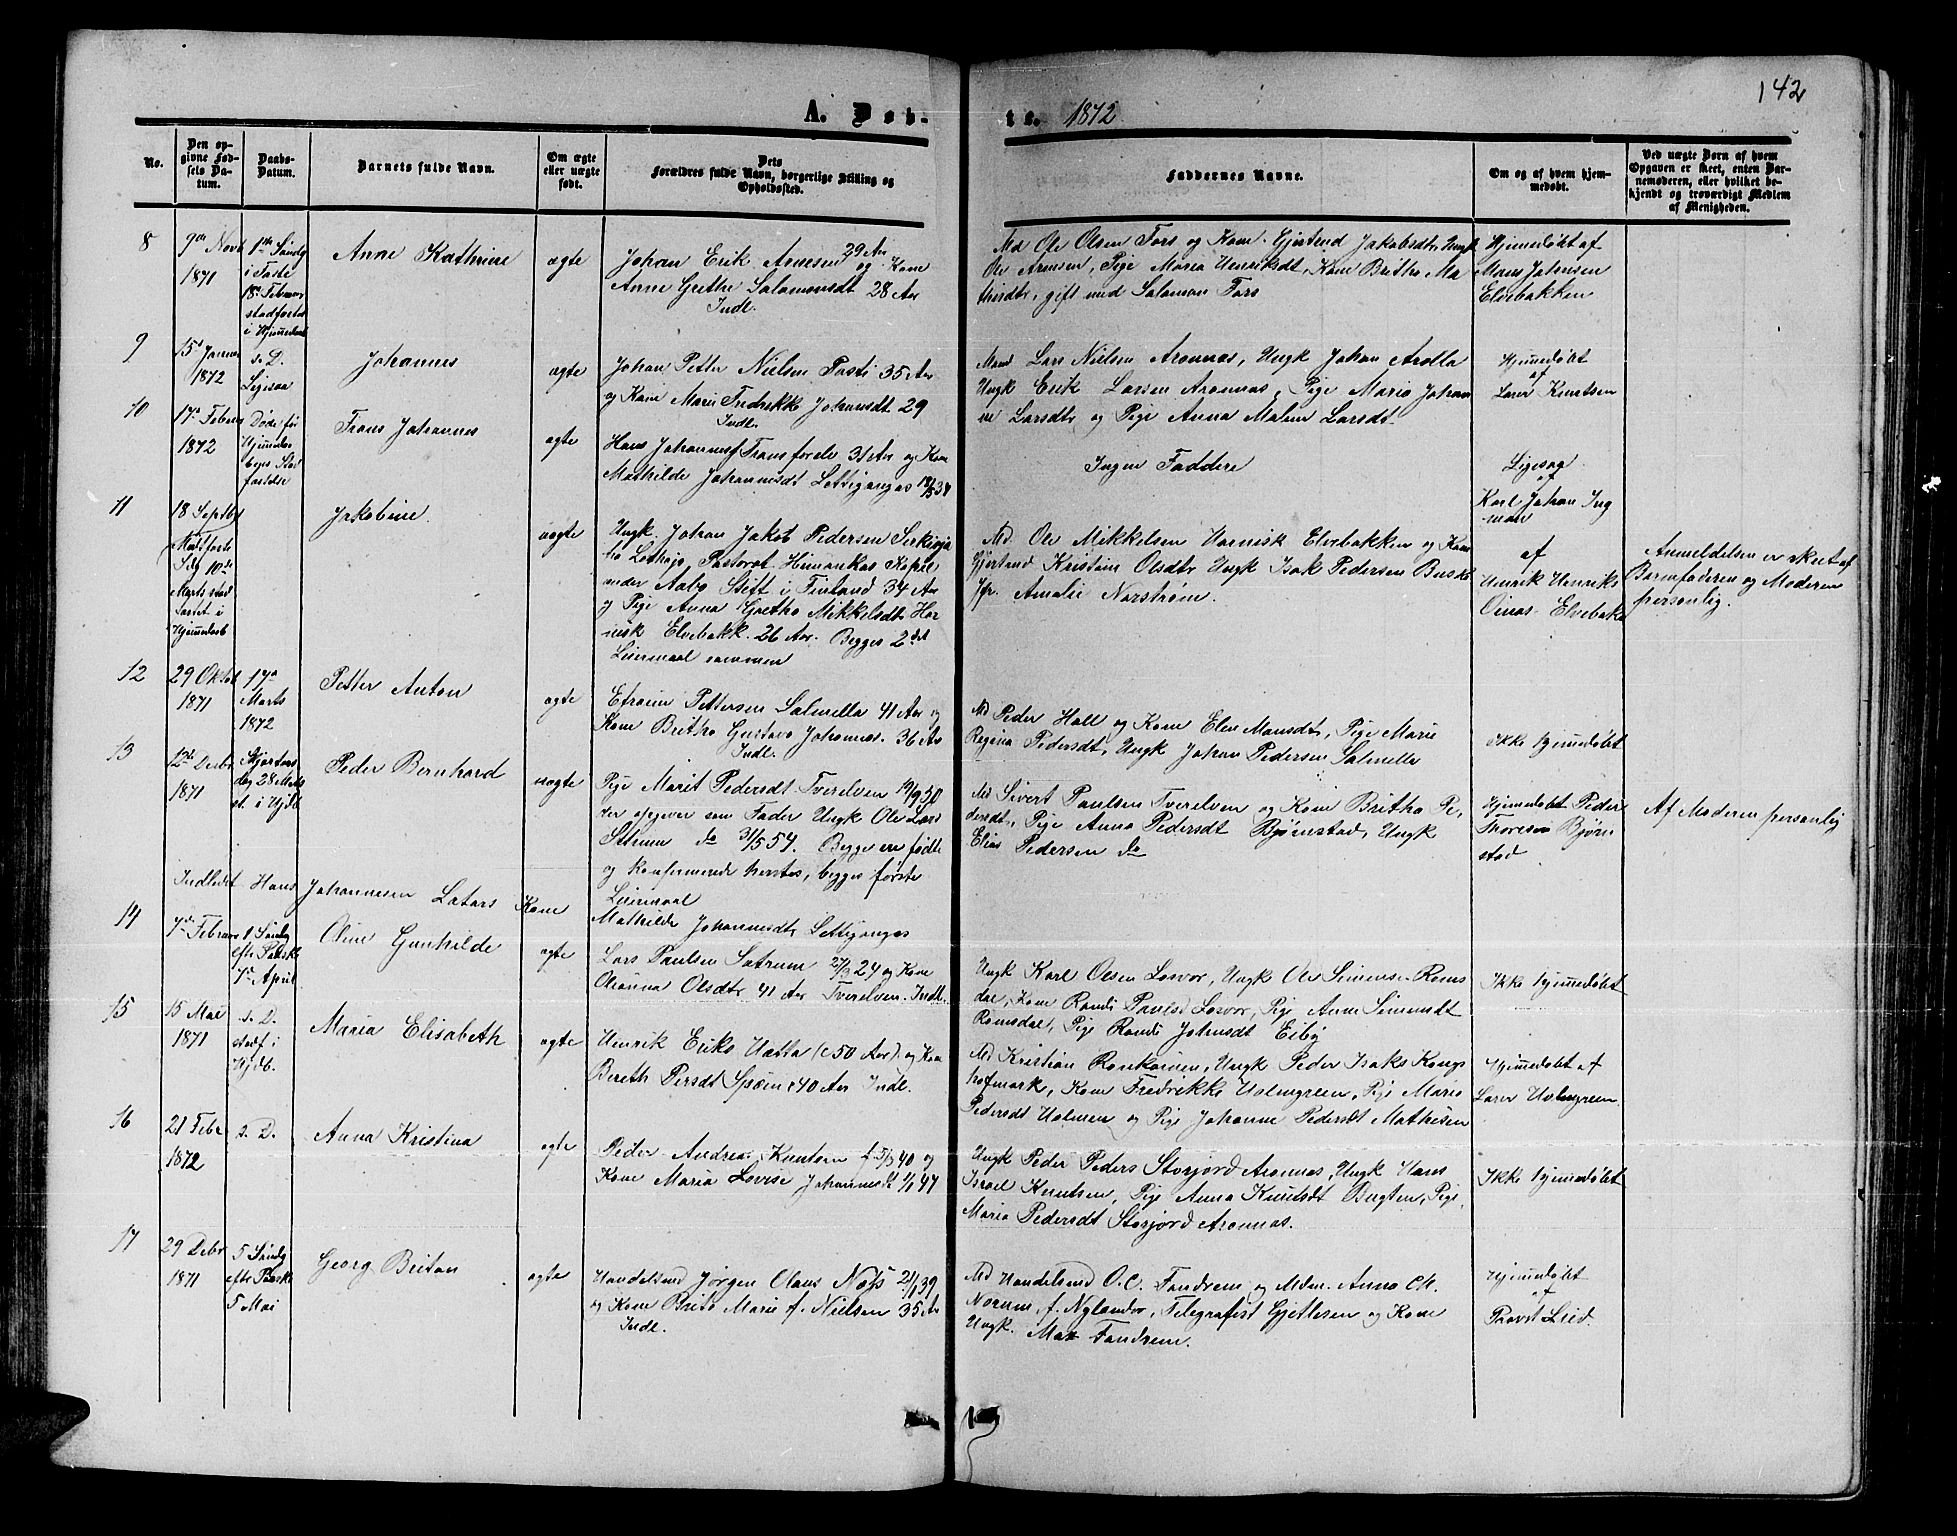 142
A. Døb-
te. 1872
No.
Den op-
givne Fød-
sels Da-
tum.
Daabs-
Datum.
Barnets fulde Navn.
Om ægte
eller uægte
født.
Dets
Forældres fulde Navn, borgerlige Stilling og
Opholdssted.
Faddernes Navne.
Om og af hvem hjem-
medøbt.
Ved uægte Børn af hvem
Opgaven er skeet, enten Bar-
nemoderen, eller hvilket be-
kjendt og troværdigt Medlem
af Menigheden.
8
9de Novb
1871
1ste Søndg
i Faste
18de Februar
stadfæstet
i Hjemmedaab
Anne Kathrine
ægte
Johan Erik Arnesen 29 Aar
og Kone
Anne Grethe Salamonsdt 28 Aar
Indl.
Md Ole Olsen Fors og Kone Gjertrud Jakobsdtr Ungk
Ole Arnesen, Pige Maria Henriksdt, Kone Britha Ma
thisdtr, gift med Salamon Fors
Hjemmedøbt af
Mons Johnsen
Elvebakken
9
15de Januar
1872
s. D.
Ligesaa
Johannes
ægte
Johan Petter Nielsen Pasti 35 Aar
og Kone Marie Fredrikke Johansdt 29
Indl.
Mand Lars Nielsen Aronnæs, Ungk Johan Arolla
Ungk Erik Larsen Aronnæs, Pige Maria Johan
ne Larsdtr og Pige Anna Malene Larsdt
Hjemmedøbt
af
Lærer Knutsen
10
17de Februar
1872
Døde før
Hjemmedaa
bens Stad
fæstelse
Frans Johannes
ægte
Hans Johannes Fransforele 31 Aar og Kone
Mathilde Johannesdt Lettigangas 18/5 34
Ingen Faddere
Ligesaa
af
Karl Johan Ing
man
11
18 Septbr
Stadfæstet
Sdg 10de
Marts stad
fæstet i
Hjemmedaab
Jakobine
uægte
Ungk. Johan Jakob Pedersen Sirkioja
Pastorat Himankas Kapel
under Aabo Stift i Finland 34 Aar
og Pige Anna Gretha Mikkelsdtr Har
nisk Elvebakk. 26 Aar. Begges 2det
Leiermaal sammen
Md. Ole Mikkelsen Harnisk Elvebakken og Kone
Gjertrud Kristine Olsdtr Ungk Isak Pedersen Busk
Jfr. Amalie Norstrøm.
af
Henrik Henriks
Oinas Elvebakk
Anmeldelsen er skeet af
Barnefaderen og Moderen
personlig.
12
29 Oktob
1871
17de
Marts
1872
Petter Anton
ægte
Efraim Pettersen Salmella 41 Aar og
Kone Britha Gustava Johannes. 36 Aar
Indl.
Md Peder Hall og Kone Elen Monsdt, Pige Marie
Regina Pedersdt, Ungk Johan Pedersen Salmella
Ikke hjemmedøbt
13
12te Decbr
1871
Skjærtors
dag 28 Marts
st. i Hjdb
Peder Bernhard
uægte
Pige Marit Pedersdt Tverelven 19/9 30
der opgiver som Fader Ungk Ole Lars
Sætrum do 31/5 54. Begge ere fødte
og konfirmerede herstes, begges første
Leiermaal
Md Sivert Paulsen Tverelven og Kone Britha Pe
dersdt, Pige Anna Pedersdt Bjørnstad, Ungk
Elias Pedersen do
Hjemmedøbt Peder
Thoresen Bjørn
stad
Af Moderen personlig
Indledet Hans Johannesen Latars Kone
Mathilde Johannesdtr Lettigangas
14
7de Februar
1 Søndg
efter Paaske
7de April
Oline Gunhilde
ægte
Lars Paulsen Sætrum 27/3 24 og Kone
Olianna Olsdtr 41 Aar Tverelven. Indl.
Ungk Karl Olsen Losvar, Ungk Ole Simens. Roms
dal, Kone Randi Pauls Losvar, Pige Anne Simensdt
Romsdal, Pige Randi Johnsdt Eiby
Ikke hjemmedøbt
15
15 Mai
1871
s. D.
stadf i
Hjdb.
Maria Elisabeth
ægte
Henrik Eriks Hætta (c 50 Aar) og Kone
Bereth Persdt Spein c 40 Aar Indl.
Md Kristian Ronkainen, Ungk Peder Isaks Kongs
hofmark, Kone Fredrikke Holmgreen, Pige Maria
Pedersdt Holmen og Pige Johanne Pedersdt Mathisen
Hjemmedøbt af
Lærer Holmgreen.
16
21 Febr
1872
s. D.
Anna Kristina
ægte
Peder Andreas Knutsen f 5/3 40 og
Kone Maria Lovise Johannesdt 1/1 47
Ungk Peder Peders Storjord Aronnæs, Ungk Hans
Israel Knutsen, Pige Anna Knutsdt Bugten, Pige
Maria Pedersdt Storjord Aronnæs.
Ikke hjemmedøbt
17
29 Decbr
1871
5 Søndg
efter Paaske
5 Mai
Georg Britan
ægte
Handelsmd Jørgen Claus Næss 21/1 39
og Kone Brite Marie f. Nielsen 35 Aar
Indl.
Md Handelsmd O. C. Fandrem og Mdm. Anna Ch.
Norum, f. Nylander, Telegrafist Gjetlesen og Kone
Ungk. Max Fandrem.
Hjemmedøbt
af
Provst Lied.